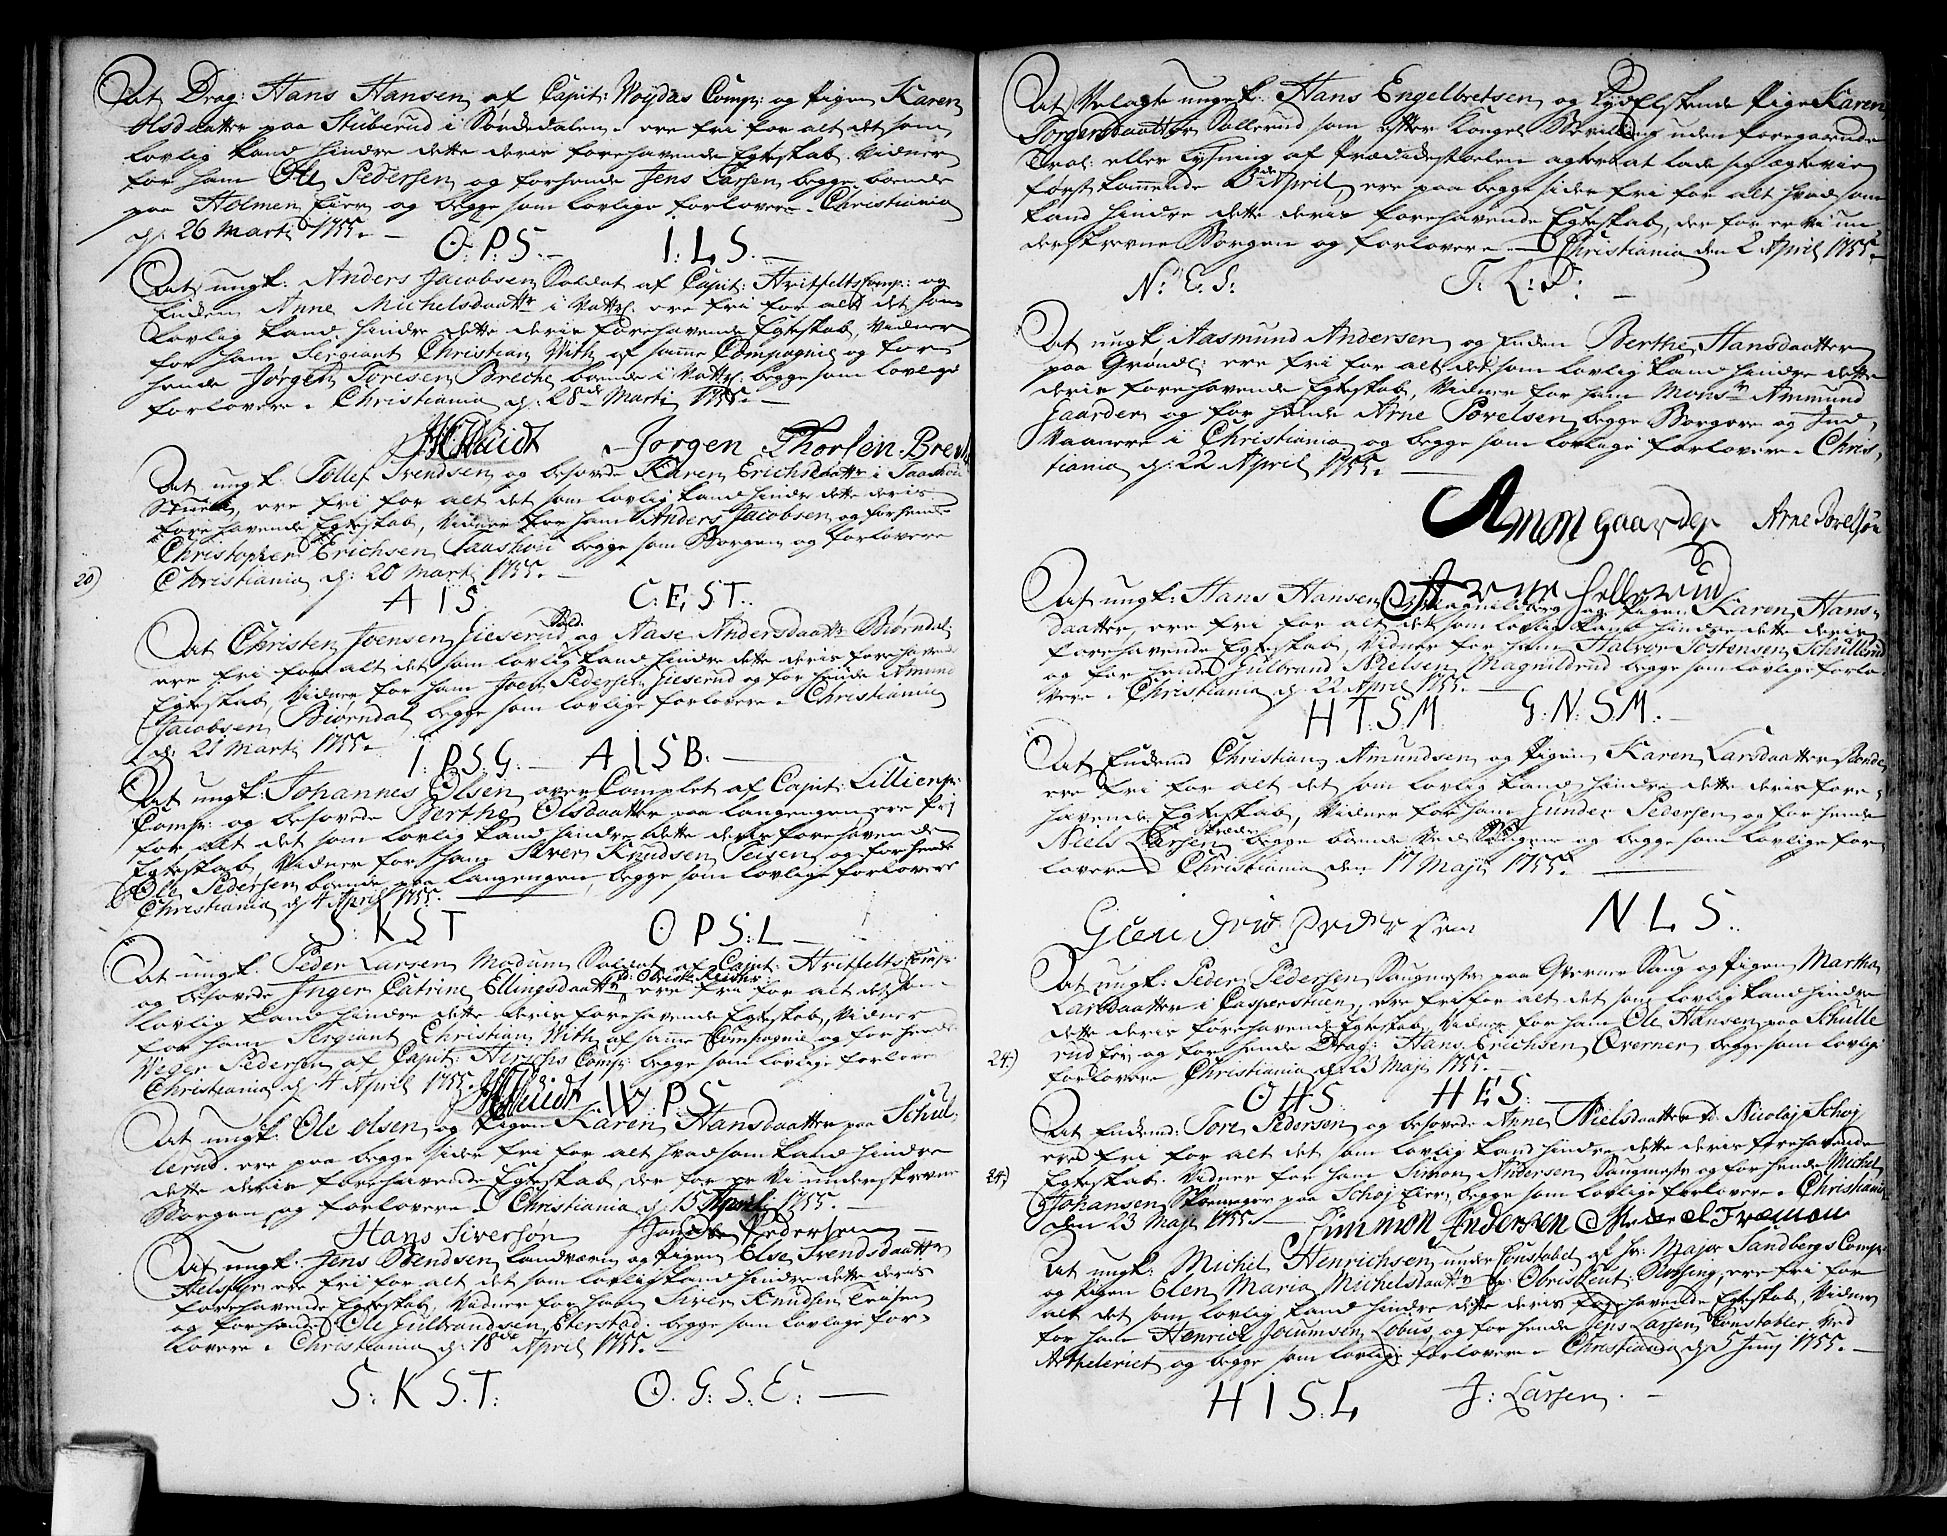 At Drag: Hans Hansen af Capit: Woydas Comp: og Pigen Karen
Olsdaatter paa Stuberud i Sørkedalen ere fri for alt det som
lovlig kand hindre dette deris forehavende Egteskab. Vidner
for ham Ole Pedersen og for hende Jens Larsen begge boende
paa Holmen Eier og begge som lovlige forlovere. Christiania
d: 26 Marti 1755.
O. P. S. I: L S.
At ungk: Anders Jacobsen Soldat af Capit: Hvitfelts Comp: og
Enken Anne Michelsdaattr i Vattrl. ere fri for alt det som
lovlig kand hindre dette deris forehavende Egteskab, Vidner
for ham Sergiant Christian With af samme Compagnie og for
hende Jørgen Toresen Breche boende i Vattrl. begge som lovlige
forlovere. Christiania d: 28de Marti 1755.
Jorgen Thorsen Breche
At ungk: Tollef Svendsen og besovede Karen Erichsdaattr i Taashou
Stuen, ere fri for alt det som lovlig kand hindre dette deris
forehavende Egteskab, Vidner for ham Anders Jacobsen og for hende
Christopher Erichsen Taashou begge som Borgen og forlovere
20) Christiania d: 20 Marti 1755.
A I S. C: E S T.
At Christen Joensen Gieserud Sold: og Aase Andersdaattr Biørndal
ere fri for alt det som lovlig kand hindre dette deris forehavende
Egteskab, Vidner for ham Joen Pedersen Gieserud og for hende Amund
Jacobsen Biørndal begge som lovlige forlovere. Christiania
d: 21 Marti 1755.
I. P S G. A I S B.
At ungk: Johannes Olsen over Complet af Capit: Lilliensp:
Comp: og besovede Berthe Olsdaatter paa Langengen ere fri
for alt det som lovlig kand hindre dette deris forehavende
Egteskab, Vidner for ham Siver Knudsen Teisen og for hende
Ole Pedersen boende paa Langengen, begge som lovlige forlovere
Christiania d: 4 April 1755.
S. K S T O P S: L
At ungk: Peder Larsen Modum Soldat af Capit: Hvitfelts Comp:
og besovede Inger Catrine Ellingsdaattr ere fri for alt det som
lovlig kand hindre dette deris forehavende Egteskab, Vidner
for ham Sergiant Christian With af samme Compagnie og for hende
Weger Pedersen af Capit: Comp: begge som lovlige forlovere
Christiania d: 4 April 1755.
W. P S
At ungk: Ole Olsen og Pigen Karen Hansdaatter paa Schul
lerud. ere paa begge sider fri for alt hvad som kand hindre
dette deris forehavende Egteskab, der for er Vi underskrevne
Borgen og forlovere Christiania d: 15 April 1755.
Hans Siversøn Pedersen
At ungk: Jens Bendsen Landværn og Pigen Else Svendsdaattr
ere fri for alt det som lovlig kand hindre dette deris
forehavende Egteskab, Vidner for ham Siver Knudsen Teisen
og for hende Ole Gulbrandsen Eterstad. begge som lovlige for-
lovere. Christiania d: 18de April 1755.
S: K S. T: O. G: S. E:
At Velagte ungk. Hans Engelbretsen og Dydelskende Pige Karen
Torgersdaatter Sollerud som efter Kongel Bevilling uden foregaaende
Trol: eller Lysning af Prædickestoelen agter at lade sig ægtevie
førstkommende April ere paa begge sider fri for alt hvad som
kand hindre dette deris forehavende Egteskab, der for er vi un-
derskrevne Borgen og forlovere. Christiania den 2 April 1755.
N: E. S:
At ungk Aasmund Andersen og Enken Berthe Hansdaatter
paa Grønl: ere fri for alt det som lovlig kand hindre dette
deris forehavende Egteskab, Vidner for ham Monsr Ammund
Gaarder og for hende Arne Povelsen begge Borgere og Ind-
vaanere i Christiania og begge som lovlige forlovere. Chris-
tiania d: 22 April 1755.
Amon gaarder Arne Povelsøn
At ungk: Hans Hansen og Pigen Karen Hans-
daatter, ere fri for alt det som lovlig kand hindre dette deris
forehavende Egteskab, Vidner for ham Halvor Tostensen Schullerud
og for hende Gulbrand Nielsen Magnildrud begge som lovlige forlo-
vere. Christiania d: 22 April 1755.
H T. S M. G. N: S M.
At Enkemd Christian Amundsen og Pigen Karen Larsdaatter
ere fri for alt det som lovlig kand hindre dette deris fore-
havende Egteskab, Vidner for ham Gunder Pedersen og for hende
Niels Larsen begge boende Ved og begge som lovlige for-
lovere Christiania den 17 Maji 1755.
Pedersen N L S.
At ungk. Peder Pedersen Saugmester paa Qverner Saug og Pigen Martha
Larsdaatter i Casperstuen, ere fri for alt det som lovlig kand hindre
dette deris forehavende Egteskab, Vidner for ham Ole Hansen paa Schulle
rud Eie og for hende Drag: Hans Erichsen Qverner begge som lovlige
24) forlovere Christiania d: 23 Maji 1755.
O H S. H E S.
At Enkemd: Tore Pedersen og besovede Anne Nielsdaatter Nicolaj Schøj
ere fri for alt det som lovlig kand hindre dette deris forehavende
24) Egteskab. Vidner for ham Simon Andersen Saugmestr og for hende Michel
Johansen paa Schøj Eier, begge som lovlige forlovere. Christiania
den 23 Maji 1755. Simmon Andersen
At ungk: Michel Henrichsen under Coustabel af Hr: Major Sandbergs Comp:
og Pigen Elen Maria Michelsdaattr Obristleut: ere fri for
alt det som lovlig kand hindre dette deris forehavende Egteskab, Vidner
for ham Henrich Lobus og for hende Jens Larsen Constabler Ved
Arthelleriet og begge som lovlige forlovere. Christiania d: 5 Junj 1755.
H I S: L J: Larsen.